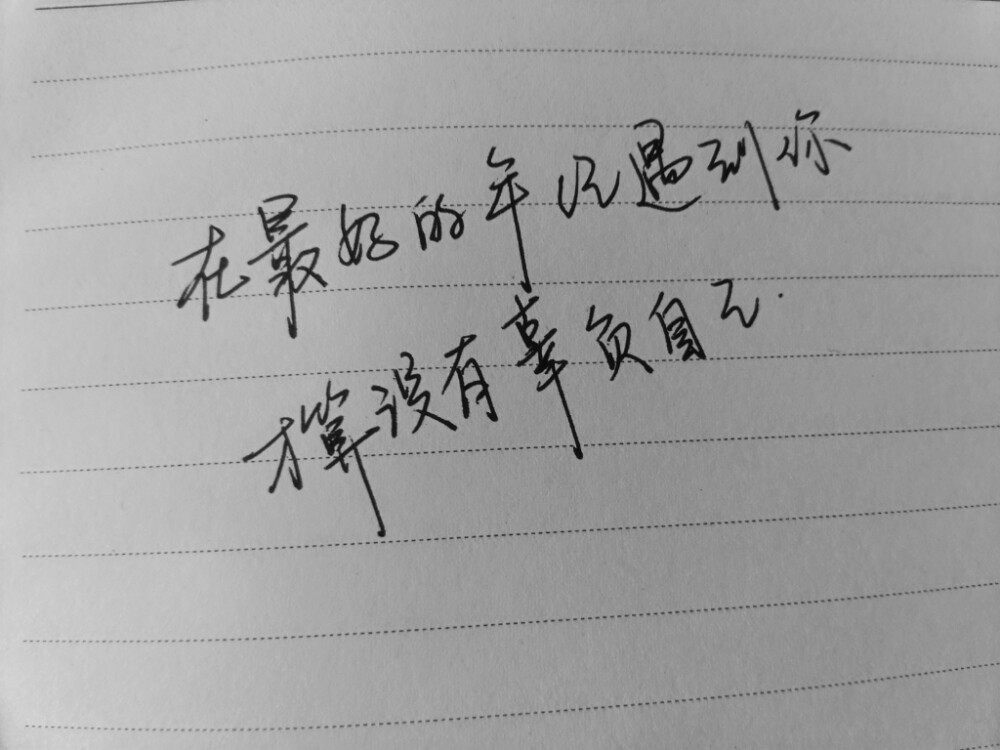 在最好的年纪遇到你
才算没有辜负自己.